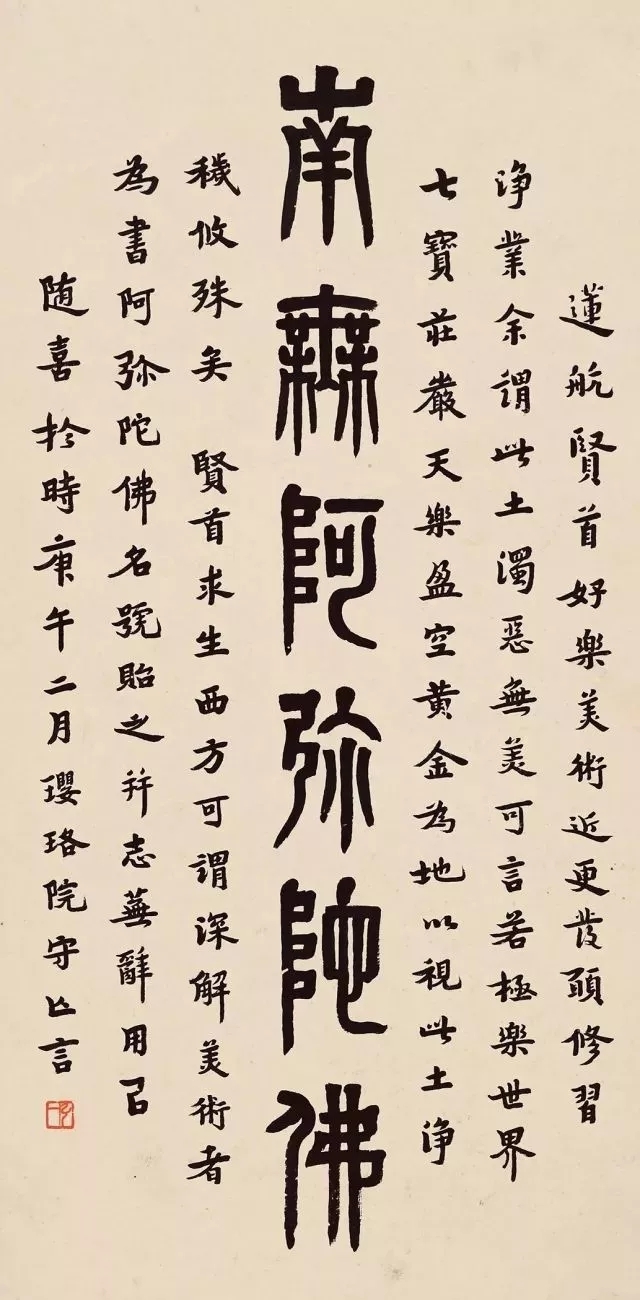 蓮航賢首好樂美術近更發願修習
浄業余謂此土濁惡無美可言若極樂世界
七寶莊嚴天樂盈空黄金為地以視此土浄
南無阿弥陀佛
穢攸殊矣 賢首求生西方可謂深解美術者
為書阿弥陀佛名號貽之并志蕪辭用㠯
随喜於時庚午二月瓔珞院守亾言